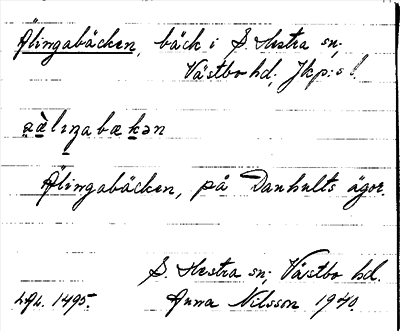 Ålingabäcken, bäck i S. Hestra sn;
Västbo hd, Jkp:s l.
Ålingabäcken, på Danhults ägor.
S. Hestra sn; Västbo hd.
Anna Nilsson 1940.
1495.